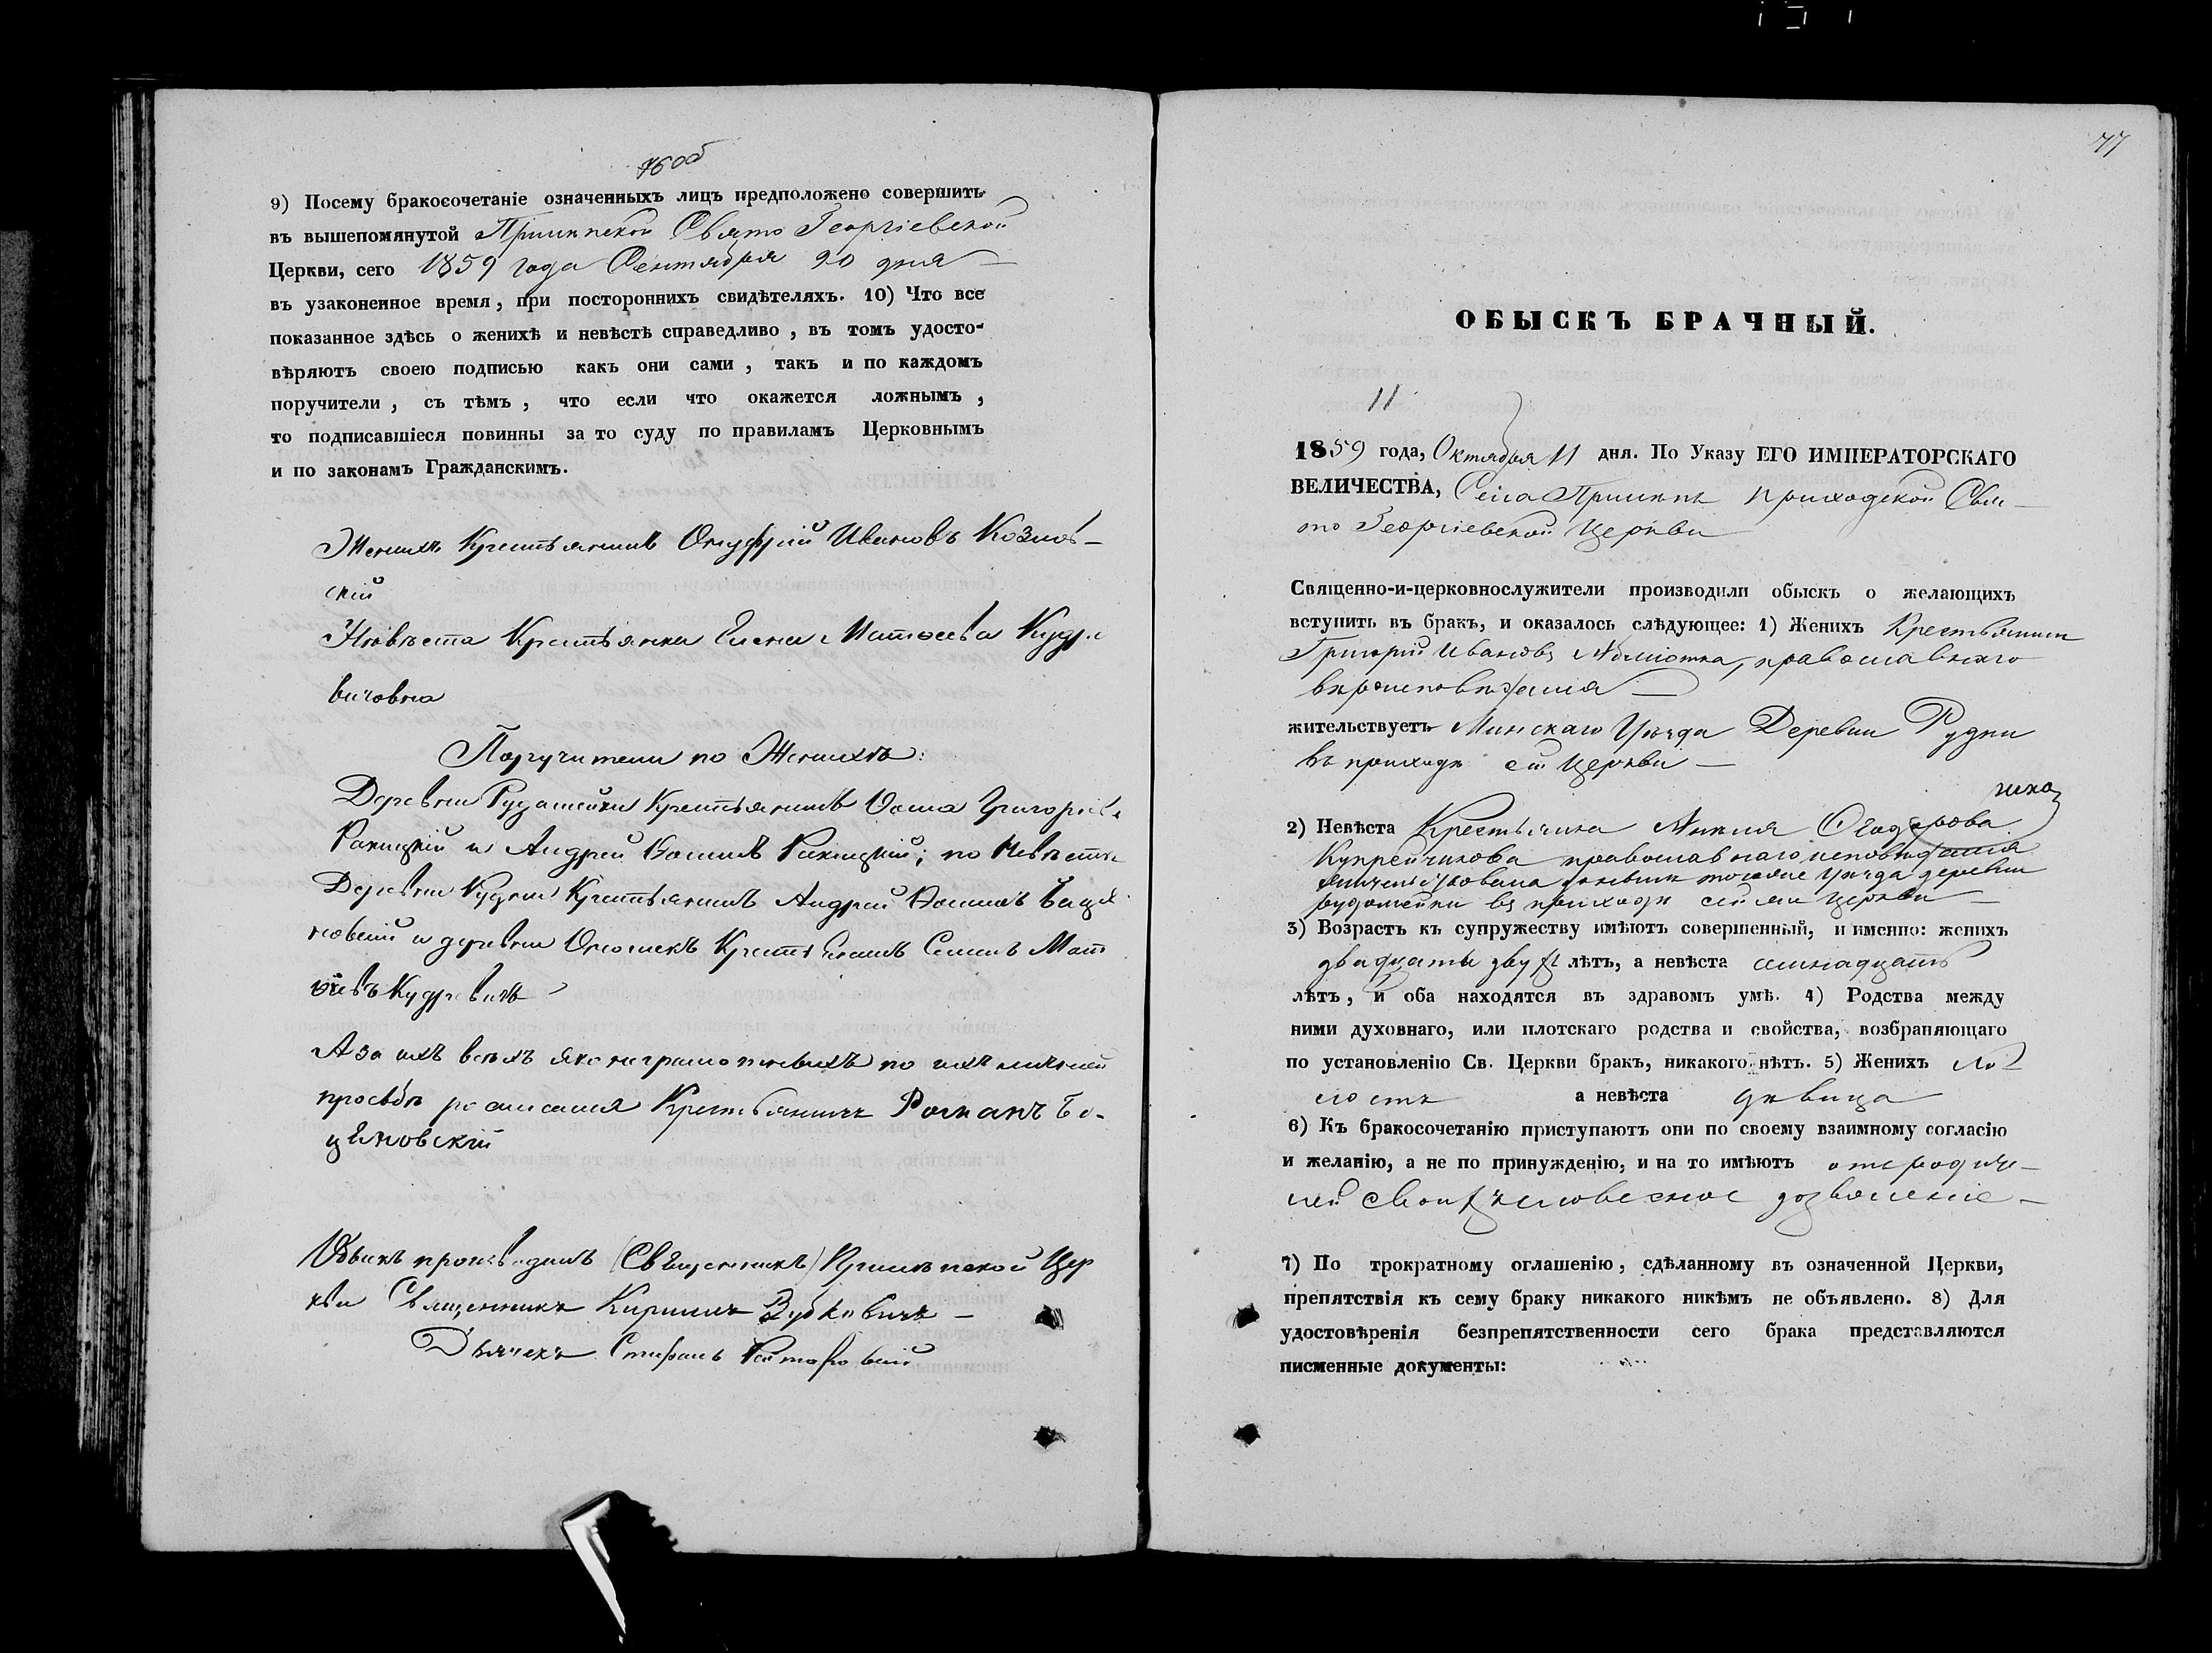 76 об
9) Посему бракосочетаніе означенныхъ лицъ предположено совершить
въ вышепомянутой Прилѣпской Свято Георгіевской
Церкви, сего 1859 года Сентября 20 дня
въ узаконенное время, при постороннихъ свидѣтеляхъ. 10) Что все
показанное здѣсь о женихѣ и невѣстѣ справедливо, въ томъ удосто-
вѣряютъ своею подписью какъ они сами, такъ и по каждомъ
поручители, съ тѣмъ, что если что окажется ложнымъ,
то подписавшіеся повинны за то суду по правиламъ Церковнымъ
и по законамъ Гражданскимъ.
Женихъ Крестьянинъ Онуфрій Ивановъ Козлов-
скій
Невѣста Крестьянка Елена Матвеева Кудре
вичовна
Поручители по Женихѣ:
Деревни Рудомейки Крестьянинъ Григорьевъ
Ракицкій и Андрей Ракицкій; по Невѣстѣ
Деревни Рудни Крестьянинъ Андрей Баця
новскій и деревни Крестьянинъ Семенъ Мат
веевъ Кудревичъ
А за ихъ всѣхъ яко неграмотныхъ по ихъ личной
просьбѣ росписался Крестьянинъ Романъ Бо-
цяновскій
Обыскъ производилъ (Священникъ) Прилѣпской Цер
кви Священникъ Кириллъ Зубковичъ
Дьячекъ Стефанъ
77
ОБЫСКЪ БРАЧНЫЙ.
11
1859 года, Октября 11 дня. По Указу ЕГО ИМПЕРАТОРСКАГО
ВЕЛИЧЕСТВА, Села Прилѣпъ приходской Свя-
то Георгіевской Церкви
Священно-и-церковнослужители производили обыскъ о желающихъ
вступить въ бракъ, и оказалось слѣдующее: 1) Женихъ Крестьянинъ
Григорій Ивановъ православнаго
вѣроисповѣданія
жительствуетъ Минскаго Уѣзда Деревни Рудни
въ приходѣ сей Церкви
2) Невѣста Крестьянка
Купрейчикова православнаго исповѣданія
жительствовала донынѣ того же Уѣзда деревни
Рудомейки въ приходѣ сей же Церкви
3) Возрастъ къ супружеству имѣютъ совершенный, и именно: женихъ
двадцати двухъ лѣтъ, а невѣста семнадцать
лѣтъ, и оба находятся въ здравомъ умѣ. 4) Родства между
ними духовнаго, или плотскаго родства и свойства, возбраняющаго
по установленію Св. Церкви бракъ, никакого нѣтъ. 5) Женихъ хо-
лостъ а невѣста дѣвица
6) Къ бракосочетанію приступаютъ они по своему взаимному согласію
и желанію, а не по принужденію, и на то имѣютъ отъ родите-
лей своихъ словесное дозволеніе
7) По трократному оглашенію, сдѣланному въ означенной Церкви,
препятствія къ сему браку никакого никѣмъ не объявлено. 8) Для
удостовѣренія безпрепятственности сего брака представляются
писменные документы: